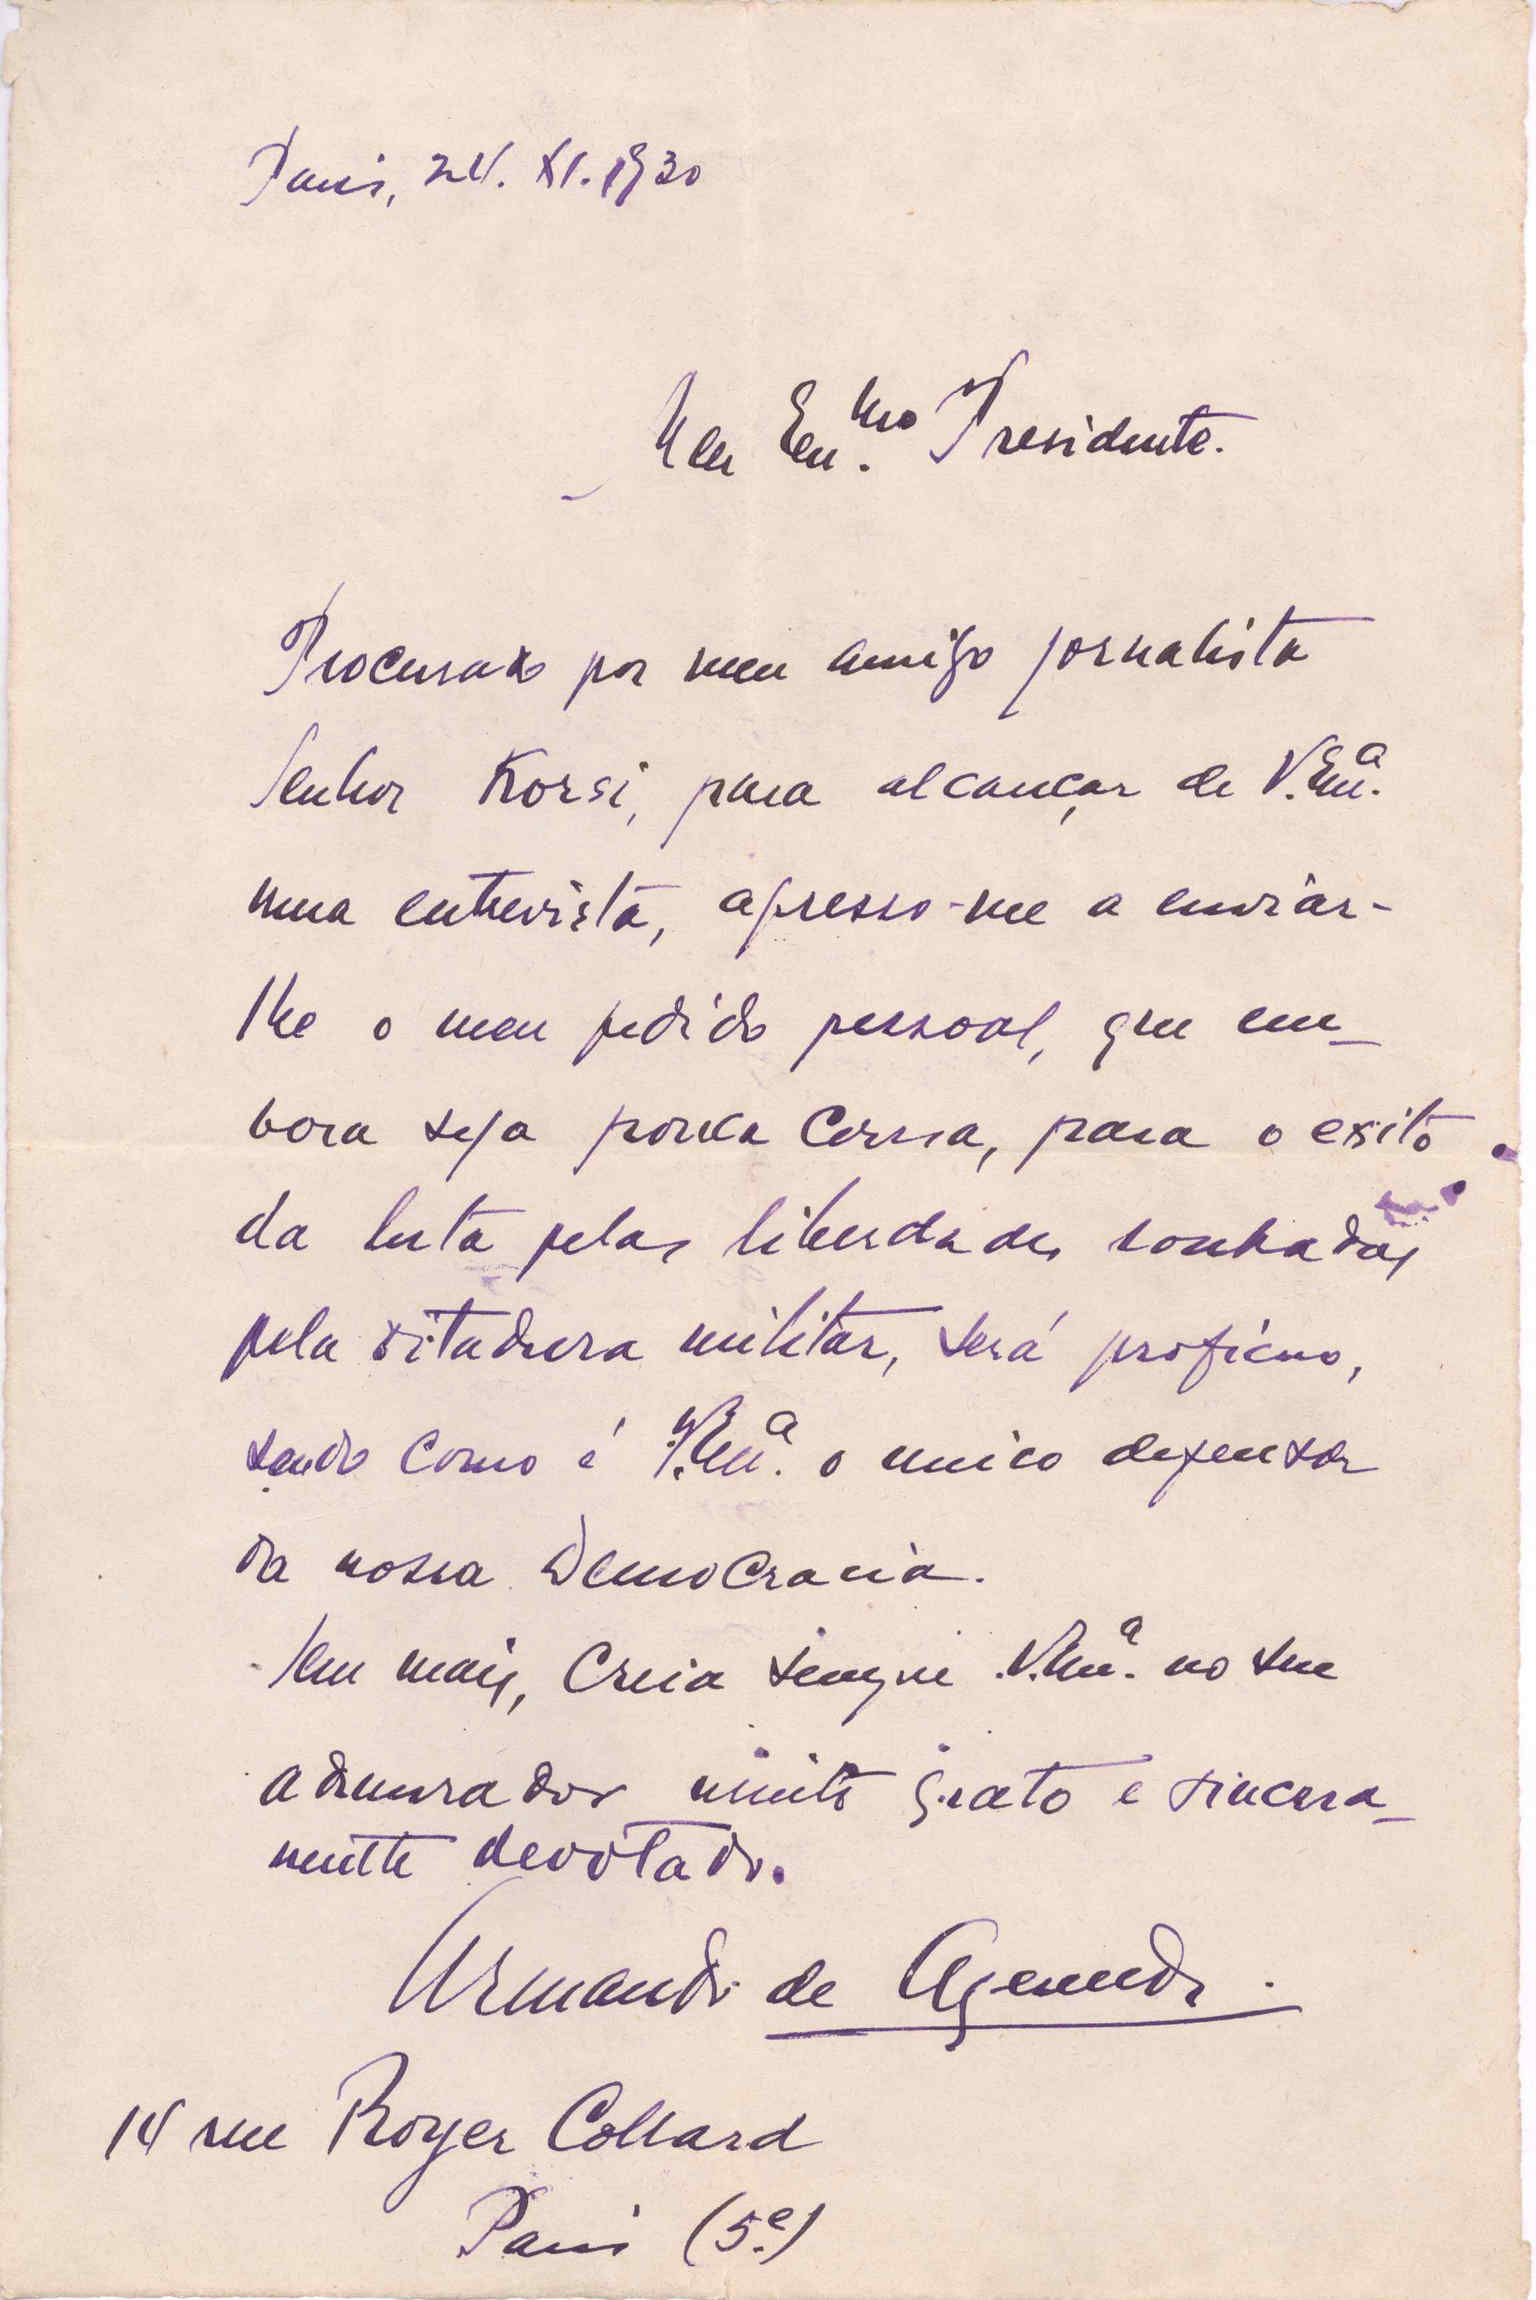 Paris, 24. XI. 1930
Meu Exmo. Presidente.
Procurado por meu amigo jornalista
Senhor Korsi, para alcançar de V. Exª.
uma entrevista, apresso-me a enviar-
lhe o meu pedido pessoal, que em-
bora seja pouca coisa, para o exito
da luta pelas liberdades roubadas
pela ditadura militar, será proficuo,
sendo como é V. Exª. o unico defensor
da nossa Democracia.
Sem mais, creia sempre V. Exª. no seu
admirador muito grato e sincera-
mente devotado.
Armando de
14 rue Royer Collard
Paris (5e.)